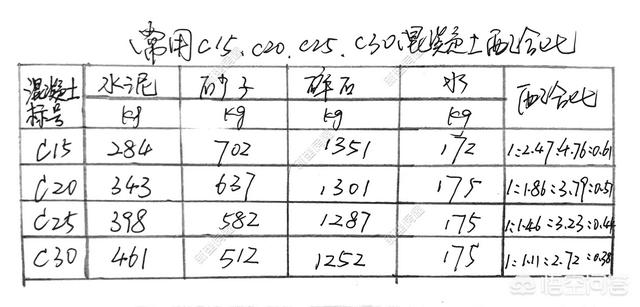 常用C15、C20、C25、C30混凝土配合比
混凝土标号 水泥 砂子 碎石 水 配合比
kg kg kg kg
C15 284 702 1351 172 1:2.47:4.76:0.61
C20 343 637 1301 175 1:1.86:3.79:0.51
C25 398 582 1287 175 1:1.46:3.23:0.44
C30 461 512 1252 175 1:1.11:2.72:0.38
悟空问答